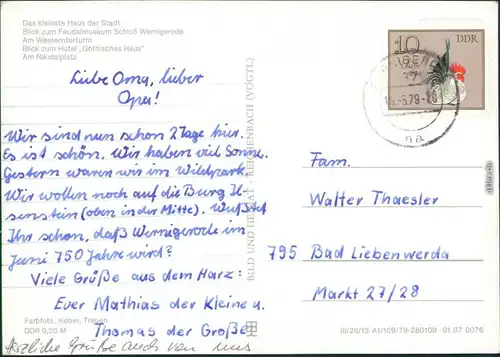 Das kleinste Haus der Stadt
Blick zum Feudalmuseum Schloß Wernigerode
Am Westerntorturm
Blick zum Hotel „Gothisches Haus"
Am Nikolaiplatz
10
DDR
-5.79-
Liebe Oma, lieber
Opa!
Wir sind nun schon 2 Tage hier.
Es ist schön. Wir haben viel Sonne.
Gestern waren wir im Wildpark.
Wir wollen noch auf die Burg Il-
senstein (oben in der Mitte). Wußtet
Ihr schon, daß Wernigerode im
Juni 750 Jahre wird?
Viele Grüße aus dem Harz:
Euer Mathias der Kleine u.
Thomas der Große
Herzliche Grüße auch von uns
BILD UND HEIMAT REICHENBACH (VOGTL)
Fam.
Walter Thaesler
795 Bad Liebenwerda
Markt 27/28
Farbfoto: Kober,
DDR 0,20 M
III/26/13 A1/109/79-280109 01 07 0076